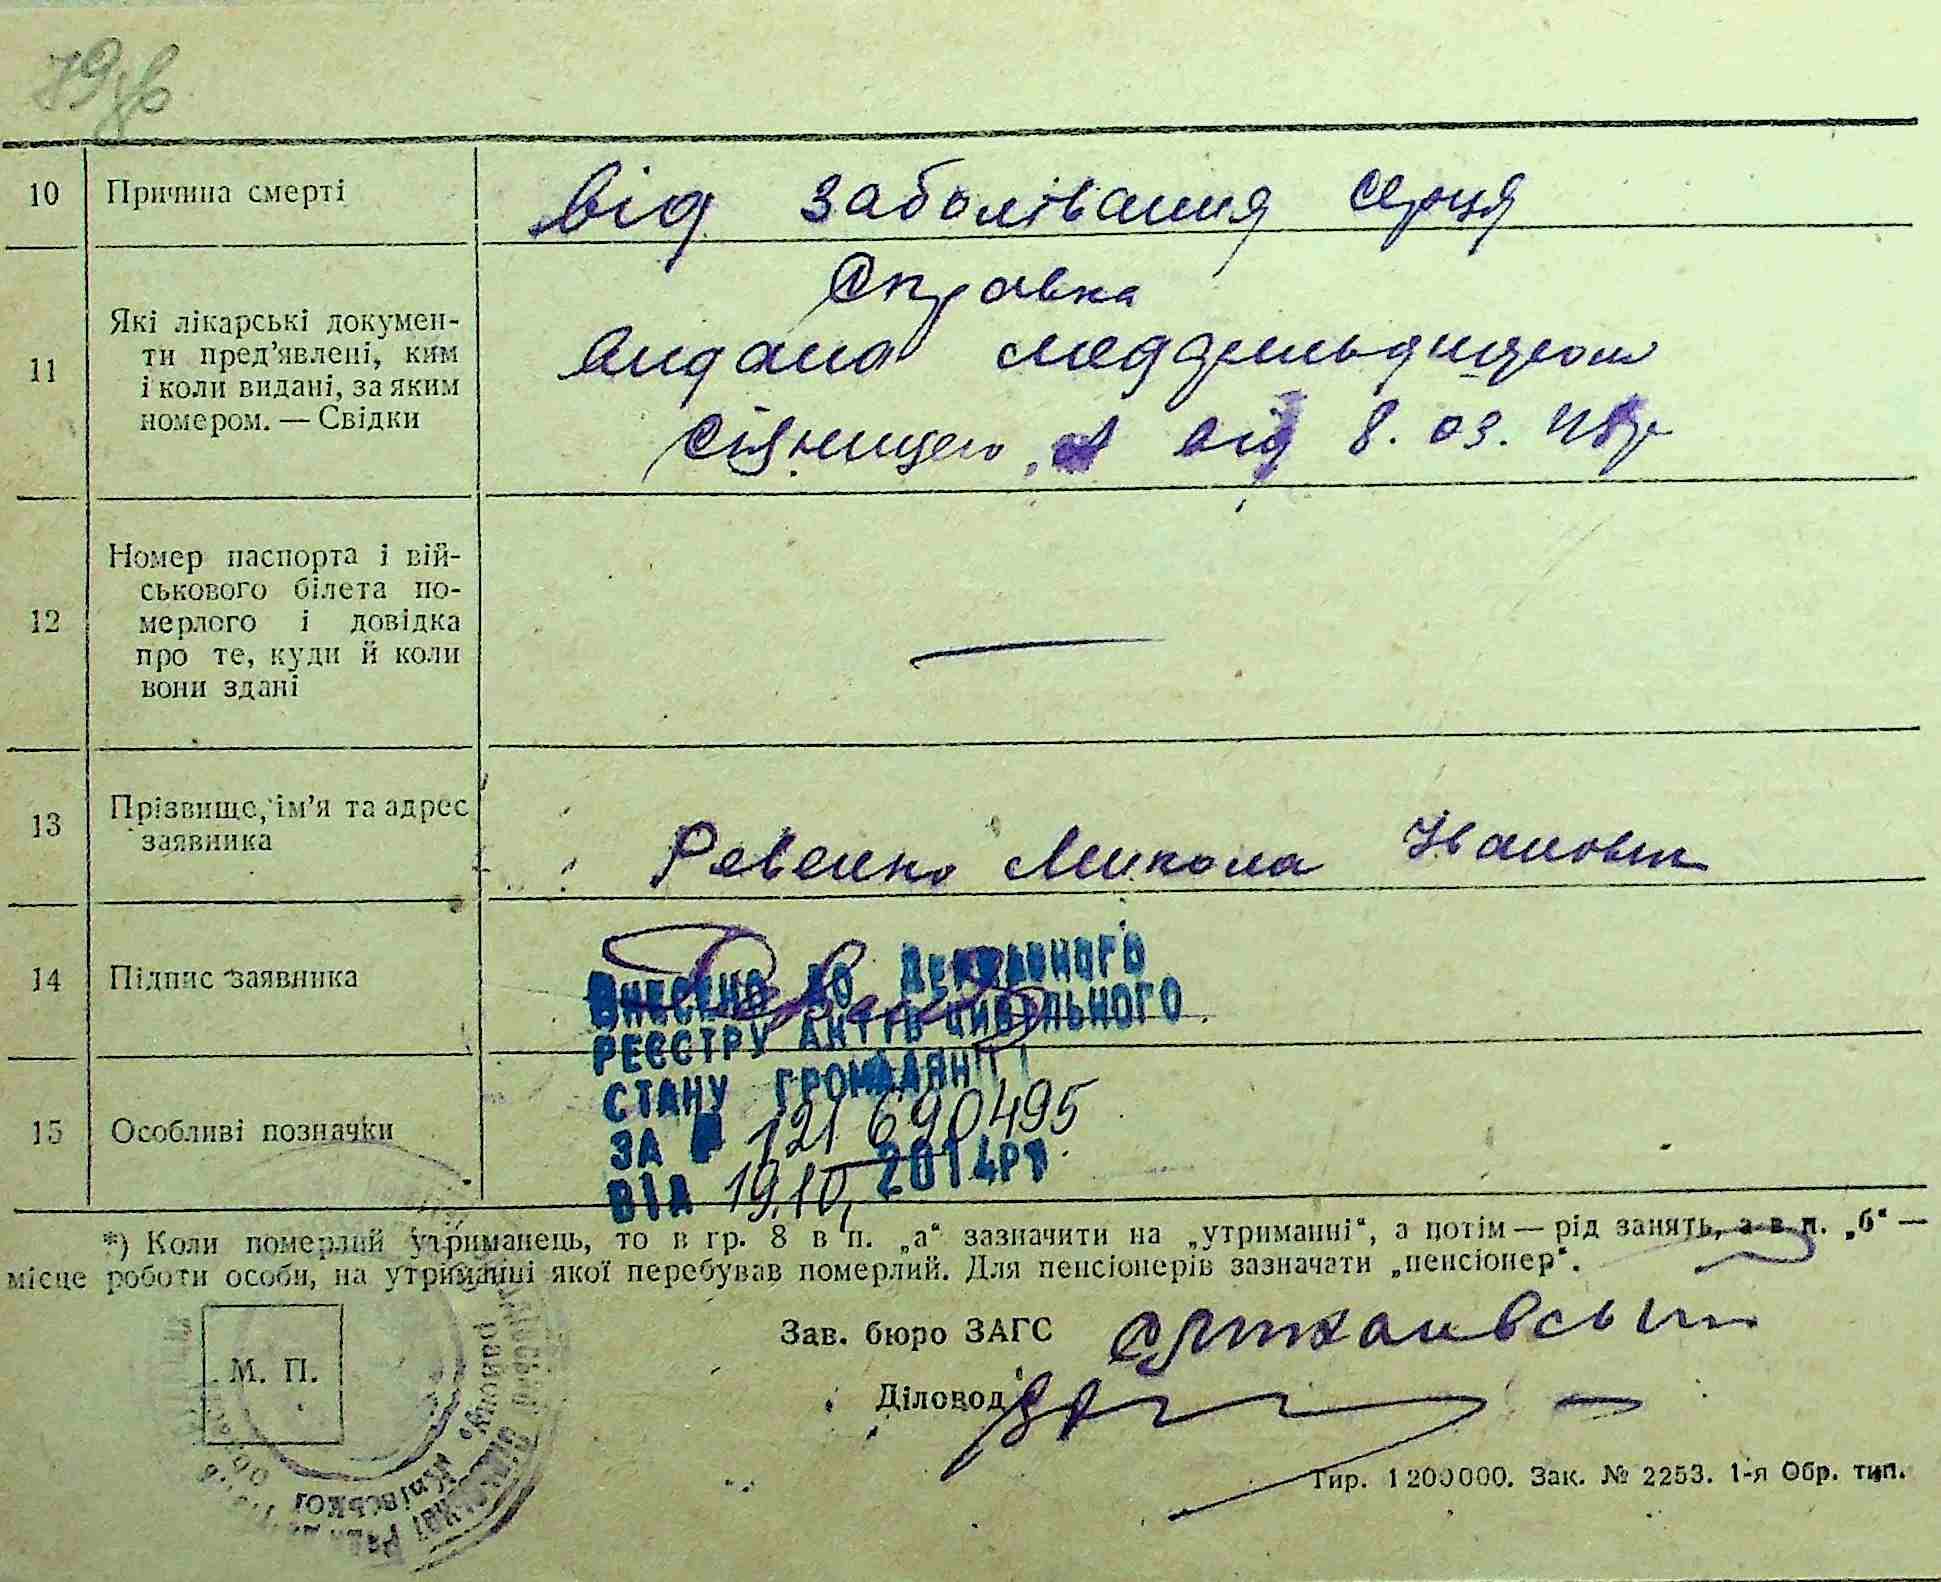 79зв
10 Причина смерті від заболівания серця
11 Які лікарські докумен-
ти пред'явлені, ким
і коли видані, за яким
номером. — Свідки
Справка
видана меддільдицею
від 8.03.
12 Номер паспорта і вій-
ськового білета по-
мерлого і довідка
про те, куди й коли
вони здані
—
13 Прізвище, ім'я та адрес
заявника
Ревенко Микола Іванович
14 Підпис заявника
ВНЕСЕНО ДО ДЕРЖАВНОГО
РЕЄСТРУ АКТІВ ЦИВІЛЬНОГО
СТАНУ ГРОМАДЯН
15 Особливі позначки
ЗА № 121 690495
ВІД 19.10. 2014р
*) Коли померлий утриманець, то в гр. 8 в п. „а“ зазначити на „утриманні“, а потім — рід занять, а в п. „б“ —
місце роботи особи, на утриманні якої перебував померлий. Для пенсіонерів зазначати „пенсіонер“.
Зав. бюро ЗАГС
М. П.
Діловод
Тир. 1200000. Зак. № 2253. 1-я Обр. тип.
Київської